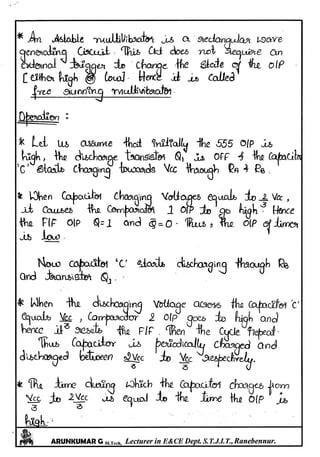 * An Astable multivibrator is a rectangular wave
generating Circuit. This Ckt does not require an
external trigger to change the state of the O/P
[either high or low]. Hence it is called
free running multivibrator.
Operation :
* Let us assume that initially the 555 O/P is
high, the discharge transistor Q1 is OFF & the capacitor
'C' starts charging towards Vcc through RA & RB.
* When Capacitor Charging Voltages equals to 2/3 Vcc,
it causes the Comparator 1 O/P to go high. Hence
the F/F O/P Q=1 and Q̅=0. Thus, the O/P of timer
is low.
Now capacitor 'C' starts discharging through RB
and transistor Q1.
* When the discharging Voltage across the Capacitor 'C'
equals Vcc/3, Comparator 2 O/P goes to high and
hence it resets the F/F. Then the cycle repeat.
Thus Capacitor is periodically charged and
discharged between 2Vcc/3 to Vcc/3 respectively.
* The time during which the Capacitor charges from
Vcc/3 to 2Vcc/3 is equal to the time the O/P is
high.
ARUNKUMAR G M.Tech, Lecturer in E&CE Dept. S.T.J.I.T., Ranebennur.